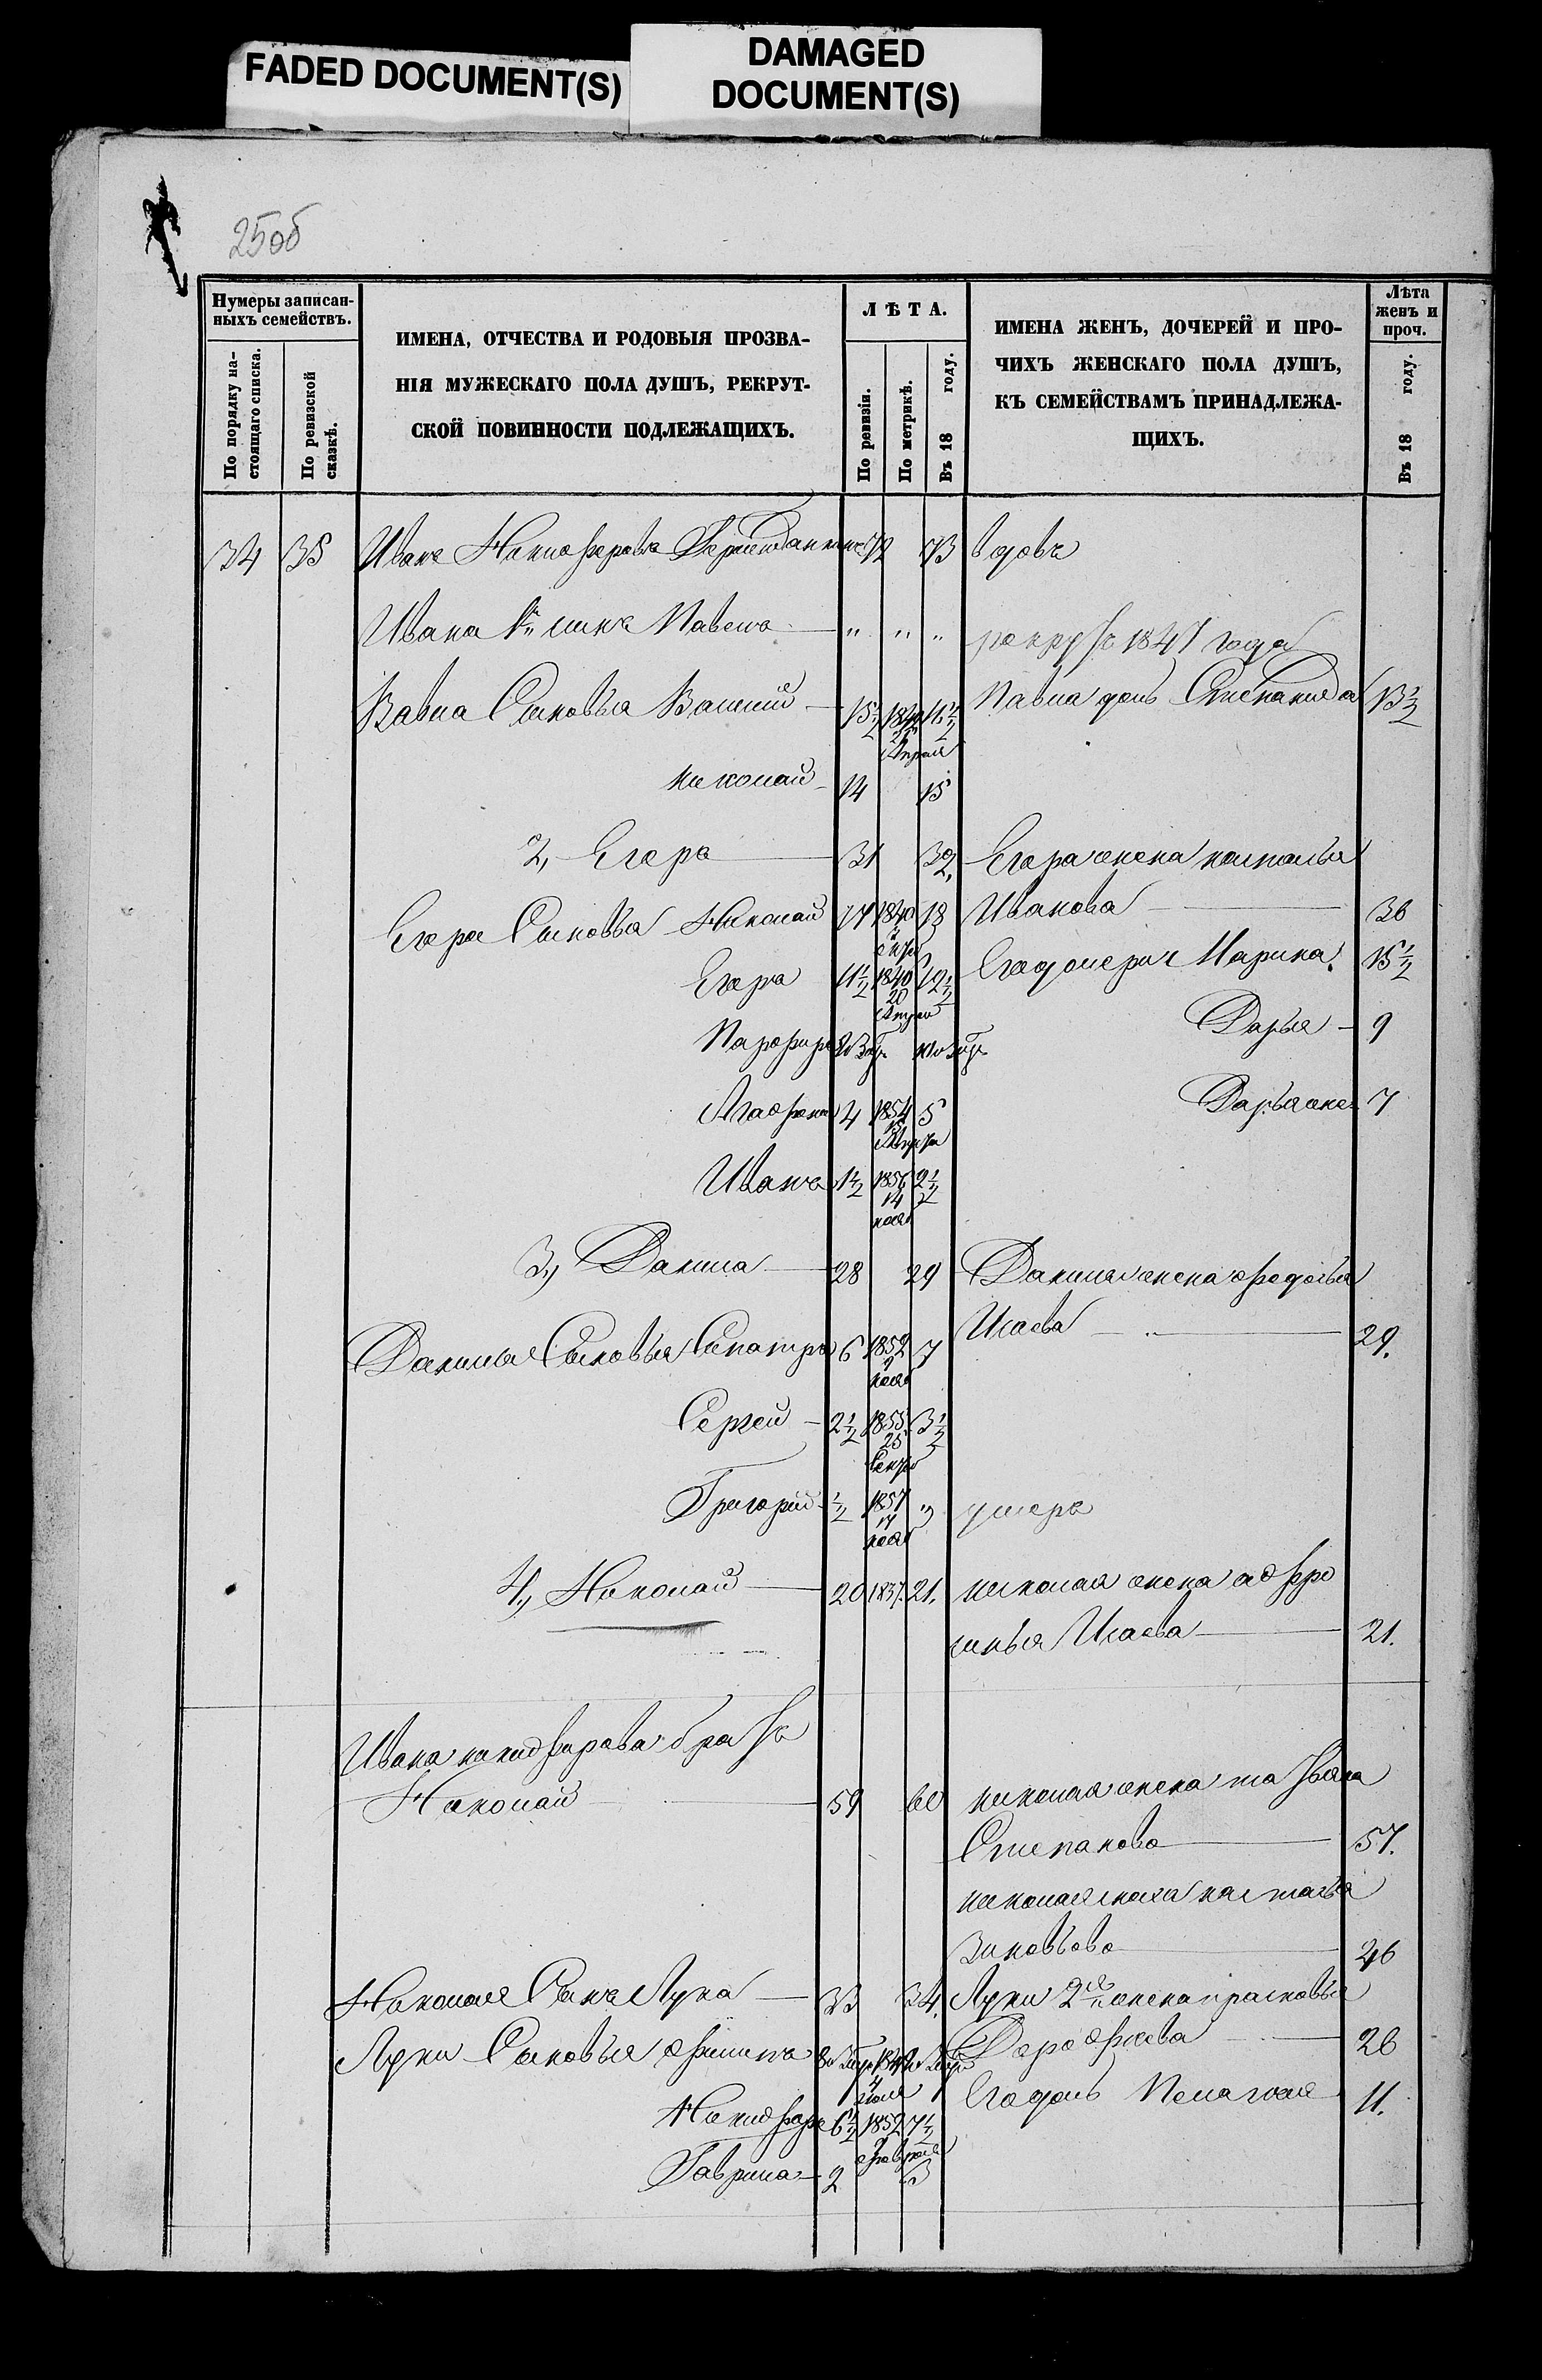 FADED DOCUMENT(S)
DAMAGED
DOCUMENT(S)
25об
Нумеры записан-
ныхъ семействъ.
По порядку на-
стоящаго списка.
По ревизской
сказкѣ.
ИМЕНА, ОТЧЕСТВА И РОДОВЫЯ ПРОЗВА-
НІЯ МУЖЕСКАГО ПОЛА ДУШЪ, РЕКРУТ-
СКОЙ ПОВИННОСТИ ПОДЛЕЖАЩИХЪ.
ЛѢТА.
По ревизіи.
По метрикѣ.
Въ 18 году.
ИМЕНА ЖЕНЪ, ДОЧЕРЕЙ И ПРО-
ЧИХЪ ЖЕНСКАГО ПОЛА ДУШЪ,
КЪ СЕМЕЙСТВАМЪ ПРИНАДЛЕЖА-
ЩИХЪ.
Лѣта
женъ и
проч.
Въ 18 году.
34 35 Иванъ Никифоровъ 72 73 вдовъ
Ивана 1й сынъ Павелъ " " " рекрутъ 1847 года
Павла Сыновья Василий 15½ Павла дочь Степанида 13½
Апреля
николай 14 15
2, Егоръ 31 32, Егора жена наталья
Егора Сыновья Николай 17 1840 18 Иванова 36
Егоръ 11½ 12½ Егадочери Марина 15½
20
Дарья 9
Агафонъ 4 1854 5 Дарья же 7
Иванъ 1½ 1856 2½
14
ноя
3, Данила 28 29 Данилы жена федосья
Исаева 29.
Данилы Сыновья Сипатръ 6 1852 7
ноя
Сергей 2½ 1855 3½
25
Сент
Григорий ½ 1857 " умеръ
17
ноя
4, Николай 20 1837. 21. николая жена
Исаева 21.
Ивана никифорова братъ
Николай 59 60 николая жена татьяна
Степанова 57.
николая сноха наталья
Зиновьева 46
Николая Сынъ Лука 33 34. Луки 2я жена прасковья
Луки Сыновья филипъ Дорофеева 26
4
Июля
Егадочь Пелагея 11.
Никифоръ 6½ 1852 7½
февраля
Гаврила 2 3